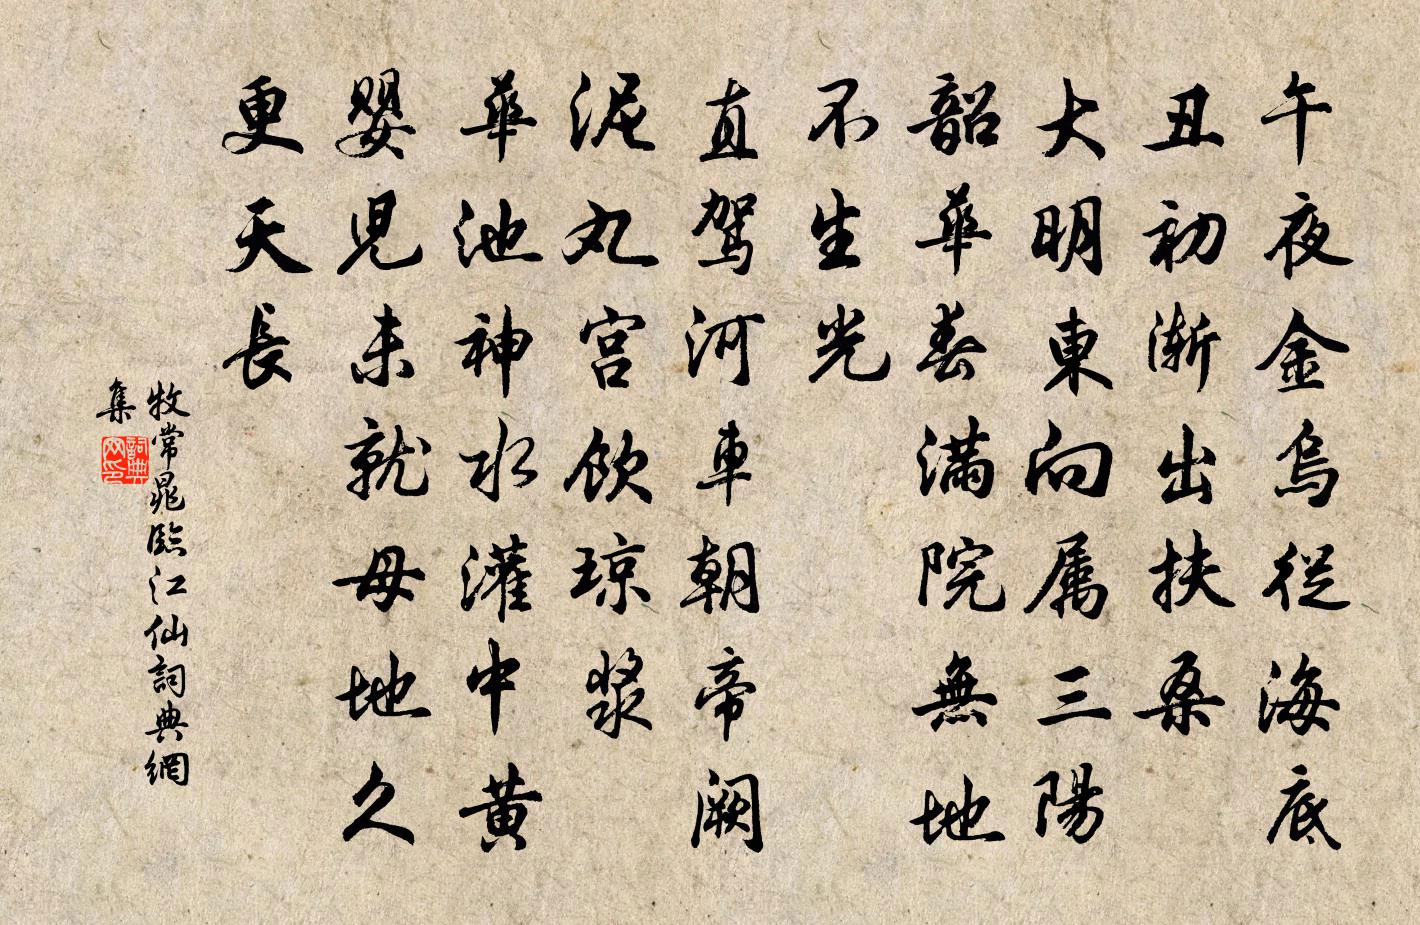 午夜金烏從海底
丑初漸出扶桑
大明東向属三陽
韶華春滿院無地
不生光
直駕河車朝帝闕
泥丸宮飲琼漿
華池神水灌中黃
嬰兒未就母地久
更天長
牧常晁臨江仙詞典網
集
詞典
网印